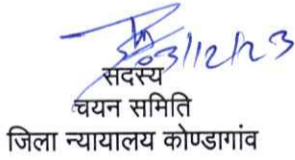 03/12/23
सदस्य
चयन समिति
जिला न्यायालय कोण्डागांव